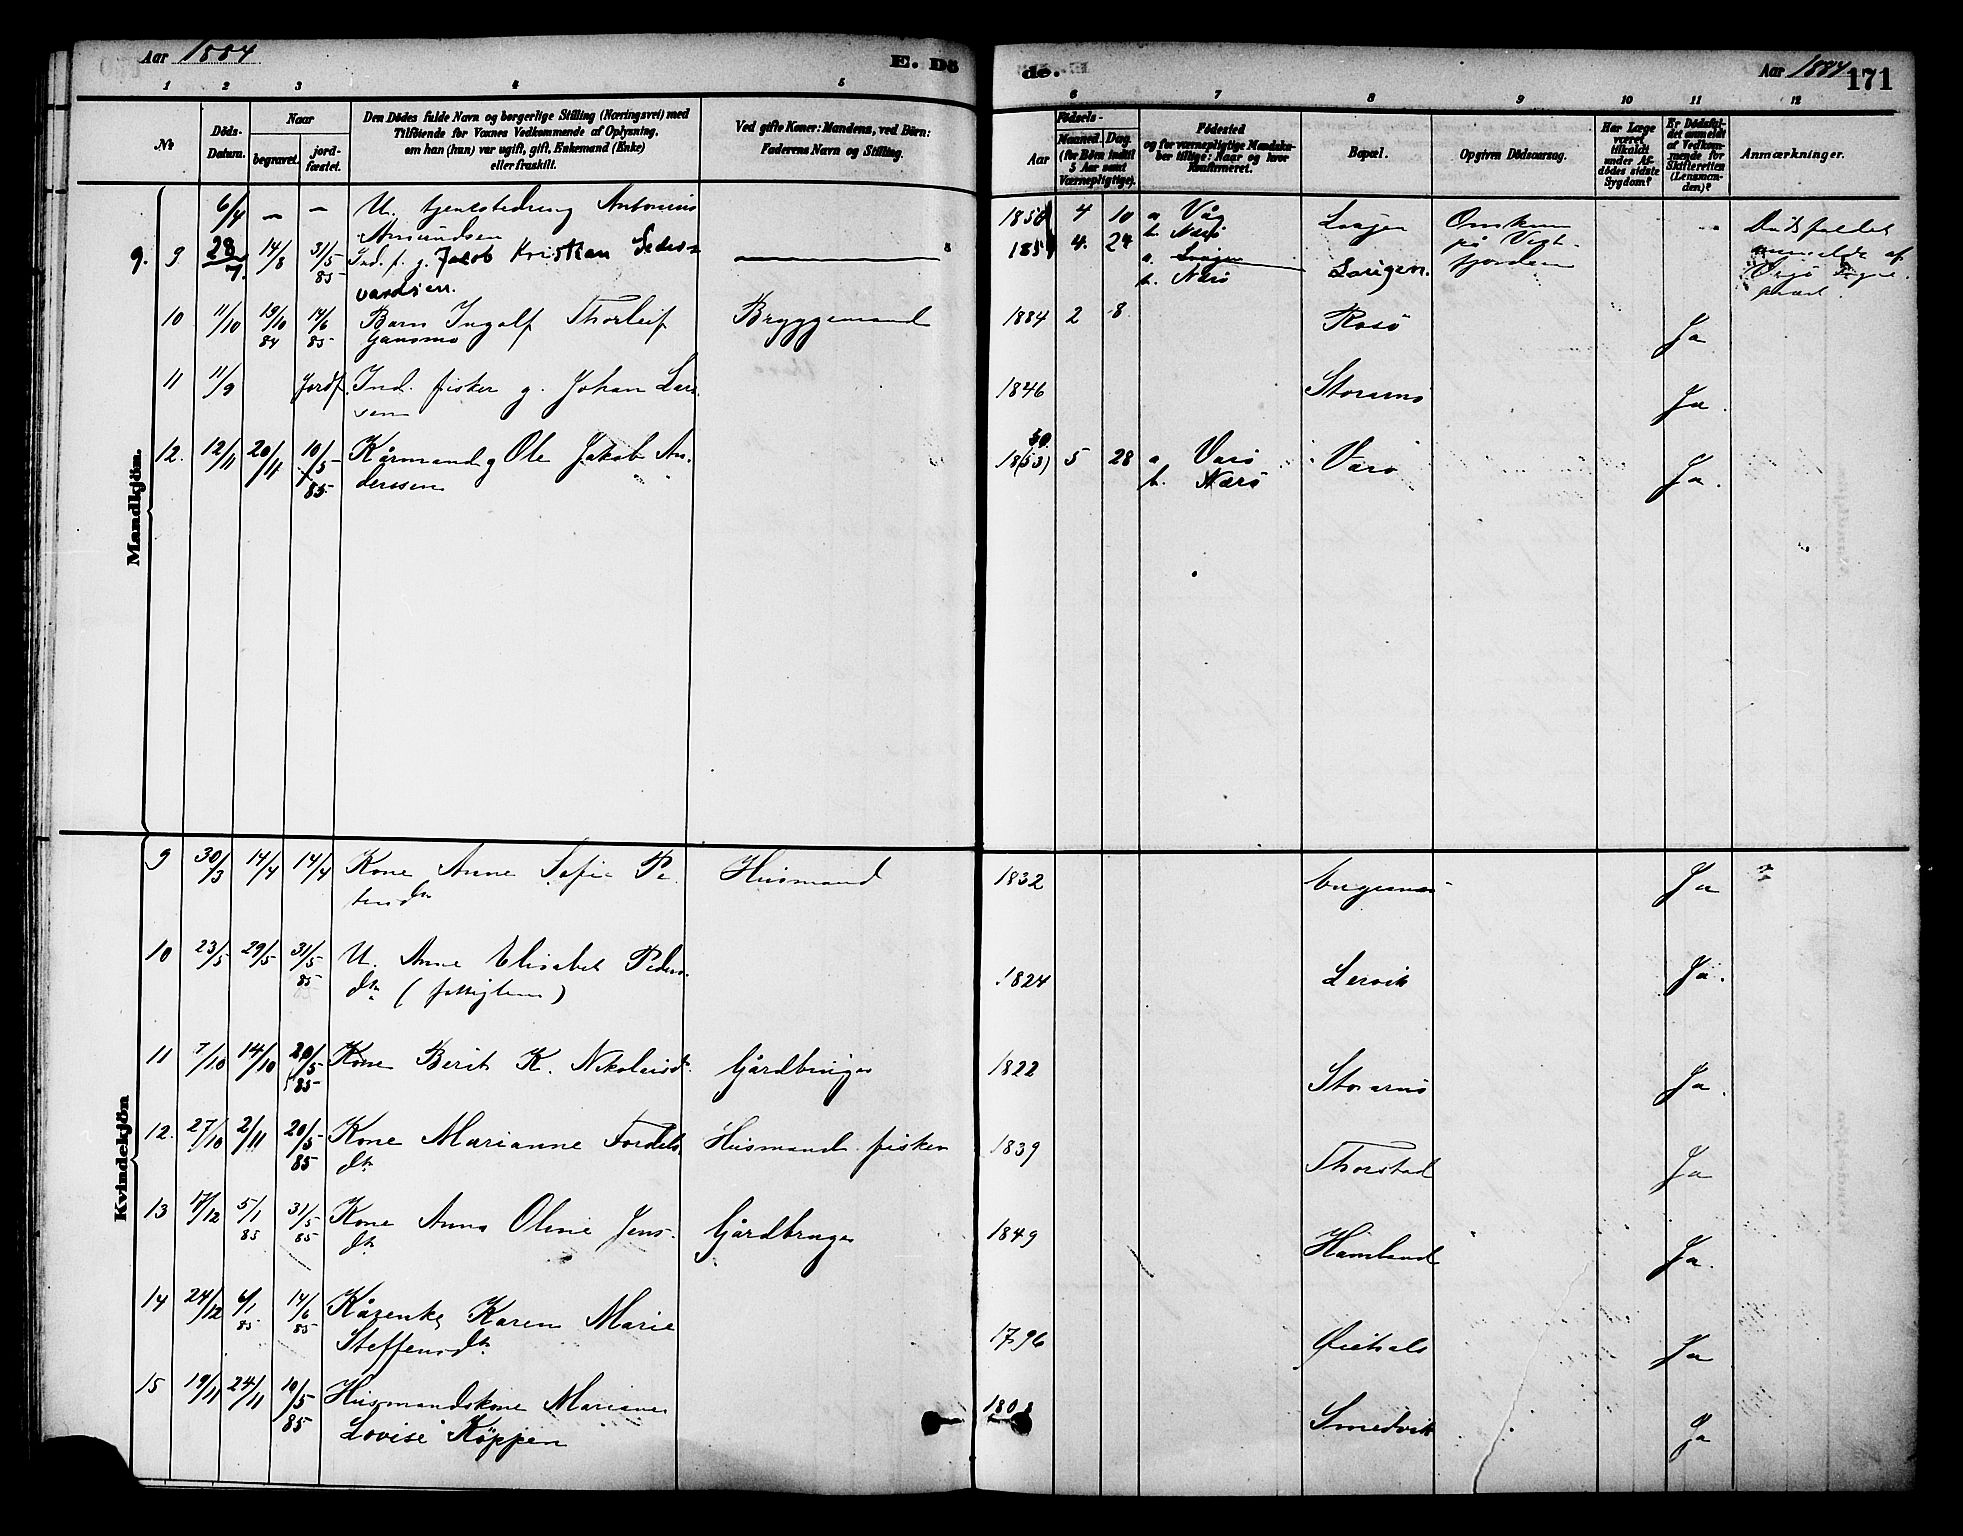 Aar 1884
E. Dö
de.
Aar 1884
171
1 2 3 4 5 6 7 8 9 10 11 12
№
Döds-
Datum.
Naar
begravet.
jord-
fæstet.
Den Dödes fulde Navn og borgerlige Stilling (Næringsvei) med
Tilföiende for Voxnes Vedkommende af Oplysning,
om han (hun) var ugift, gift, Enkemand (Enke)
eller fraskilt.
Ved gifte Koner: Mandens, ved Börn:
Faderens Navn og Stilling.
Aar
Födsels-
Maaned. Dag
(for Börn indtil
5 Aar samt
Værnepligtige).
Födested
og for værnepligtige Mandska-
ber tillige: Naar og hvor
konfirmeret.
Bopæl.
Opgiven Dödsaarsag.
Har Læge
været
tilkaldt
under Af-
dödes sidste
Sygdom?
Er Dödsfal-
det anmeldt
af Vedkom-
mende for
Skifteretten
(Lensman-
den)?
Anmærkninger.
Mandkjön.
6/4 – – U. tjenestedreng Antonius
Amundsen
1858 4 10 a Våg
b. Nærö
9. 9 28/7 14/8 31/5 85 Ind. f. g. Jacob Kristian
vardsen.
185 4. 24
b. Nærö
på
10 11/10 19/10 84 14/6 85 Barn Ingolf Thorleif Bryggemand 1884 2 8 Rosö Ja
Gansmo
11 11/9 Jordf. Ind. fisker g. Johan Lar- 1846 Ja.
sen
12. 12/11 20/11 10/5 85 Kårmand g Ole Jakob An-
derssen
50
18(53) 5 28 a Varö Varö Ja.
b. Nærö
Kvindekjön
9 30/3 14/4 14/4 Kone Anne Sofie Pe Husmand 1832 Ja
10 23/5 29/5 31/5 85 U. Anne Elisabet Peders 1824 Lervik Ja.
dtr (fattiglem)
11 7/10 14/10 20/5 85 Kone Berit K. Nikolaisdr Gårdbruger 1822 Ja.
12. 27/10 2/11 20/5 85 Kone Marianne Tordels Husmand fisker 1839 Thorstad Ja
dtr
13 17/12 5/1 85 31/5 85 Kone Anna Oline Jens- Gårdbruger 1849 Hamland Ja.
dtr
14 24/12 6/1 85 14/6 85 Kårenke Karen Marie
Steffensdtr 1796 Ja
15 19/11 24/11 10/5 85 Husmandskone Mariane 1808 Smedvik Ja
Lovise Köppen